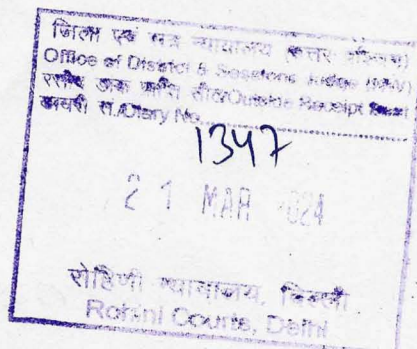 जिला एवं सत्र न्यायालय (उत्तर पश्चिम)
Office of District & Sessions Judge (N/W)
डाक प्राप्ति सीट/Outside Receipt
डायरी सं./Diary No.
1347
21 MAR 024
रोहिणी न्यायालय, दिल्ली
Rohini Courts, Delhi